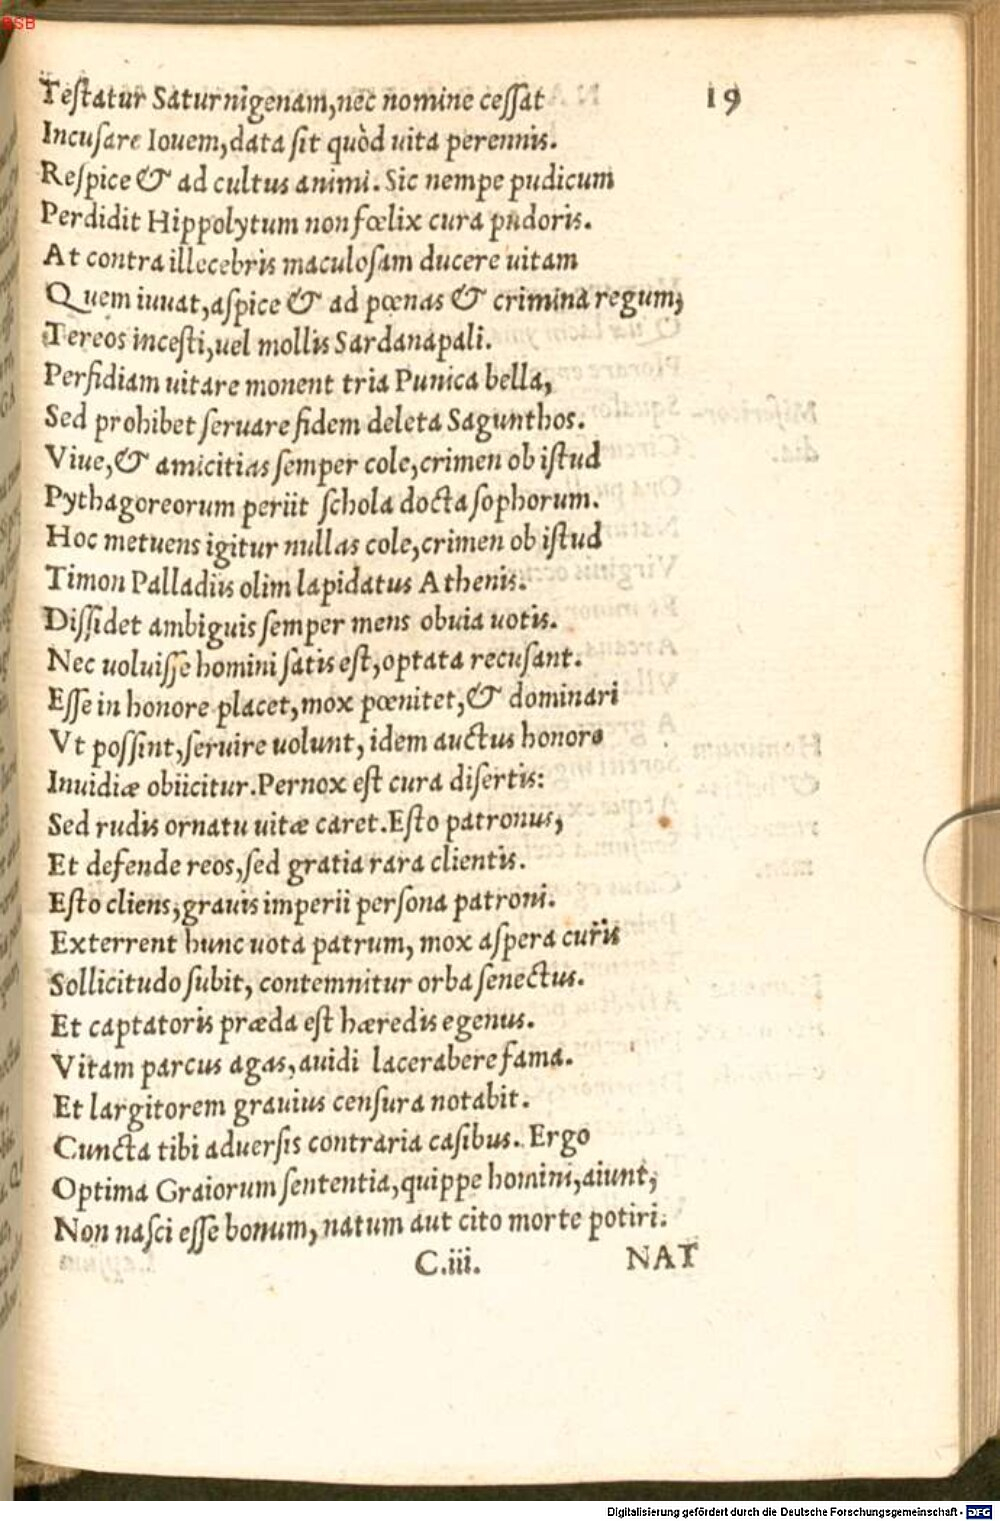 BSB
Testatur Saturnigenam, nec nomine cessat 19
Incusare Iouem, data sit quòd uita perennis.
Respice & ad cultus animi. Sic nempe pudicum
Perdidit Hippolytum non fœlix cura pudoris.
At contra illecebris maculosam ducere uitam
Quem iuuat, aspice & ad pœnas & crimina regum,
Tereos incesti, uel mollis Sardanapali.
Perfidiam uitare monent tria Punica bella,
Sed prohibet seruare fidem deleta Sagunthos.
Viue, & amicitias semper cole, crimen ob istud
Pythagoreorum periit schola docta sophorum.
Hoc metuens igitur nullas cole, crimen ob istud
Timon Palladiis olim lapidatus Athenis.
Dissidet ambiguis semper mens obuia uotis.
Nec uoluisse homini satis est, optata recusant.
Esse in honore placet, mox pœnitet, & dominari
Vt possint, seruire uolunt, idem auctus honore
Inuidiæ obiicitur. Pernox est cura disertis:
Sed rudis ornatu uitæ caret. Esto patronus,
Et defende reos, sed gratia rara clientis.
Esto cliens, grauis imperii persona patroni.
Exterrent hunc uota patrum, mox aspera curis
Sollicitudo subit, contemnitur orba senectus.
Et captatoris præda est hæredis egenus.
Vitam parcus agas, auidi lacerabere fama.
Et largitorem grauius censura notabit.
Cuncta tibi aduersis contraria casibus. Ergo
Optima Graiorum sententia, quippe homini, aiunt,
Non nasci esse bonum, natum aut cito morte potiri.
C.iii. NAT
Digitalisierung gefördert durch die Deutsche Forschungsgemeinschaft - DFG